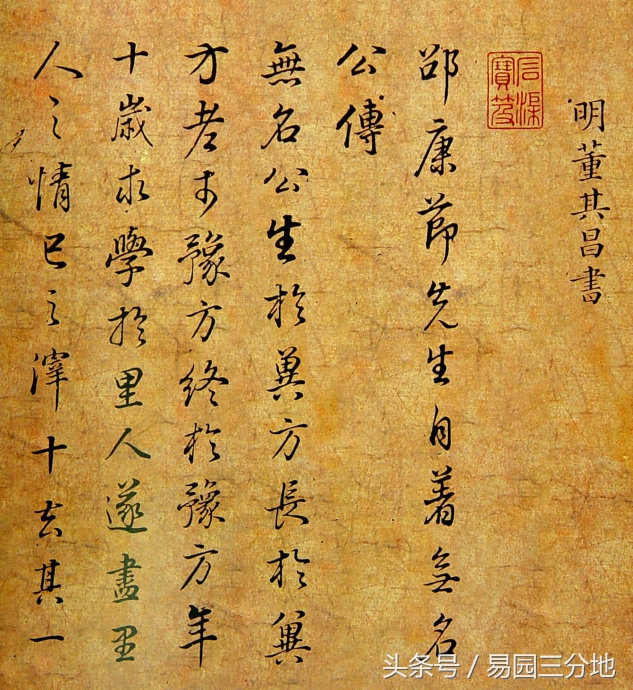 明董其昌書
石渠寶笈
邵康節先生自著無名
公傳
無名公生於冀方長於冀
方老於豫方終於豫方年
十歲求學於里人遂盡里
人之情已之滓十去其一
头条号 / 易园三分地